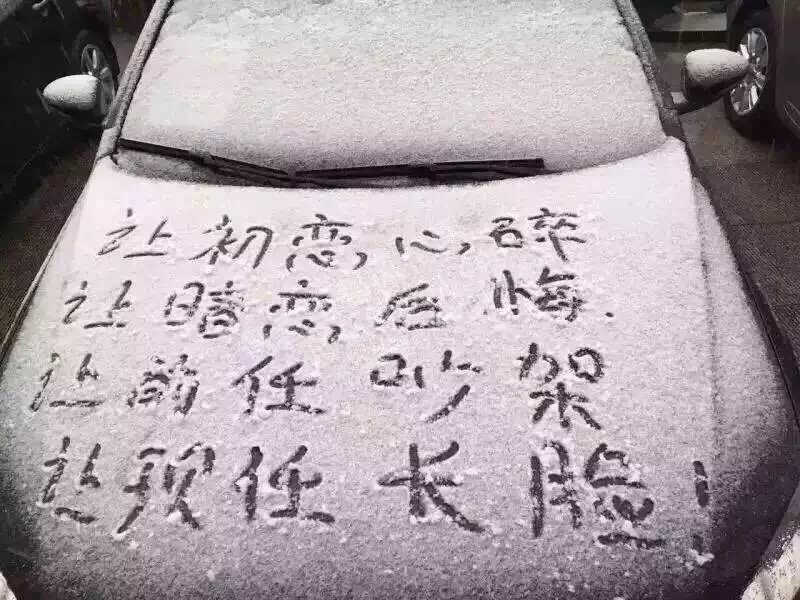 让初恋心碎
让暗恋后悔.
让前任吵架
让现任长脸!